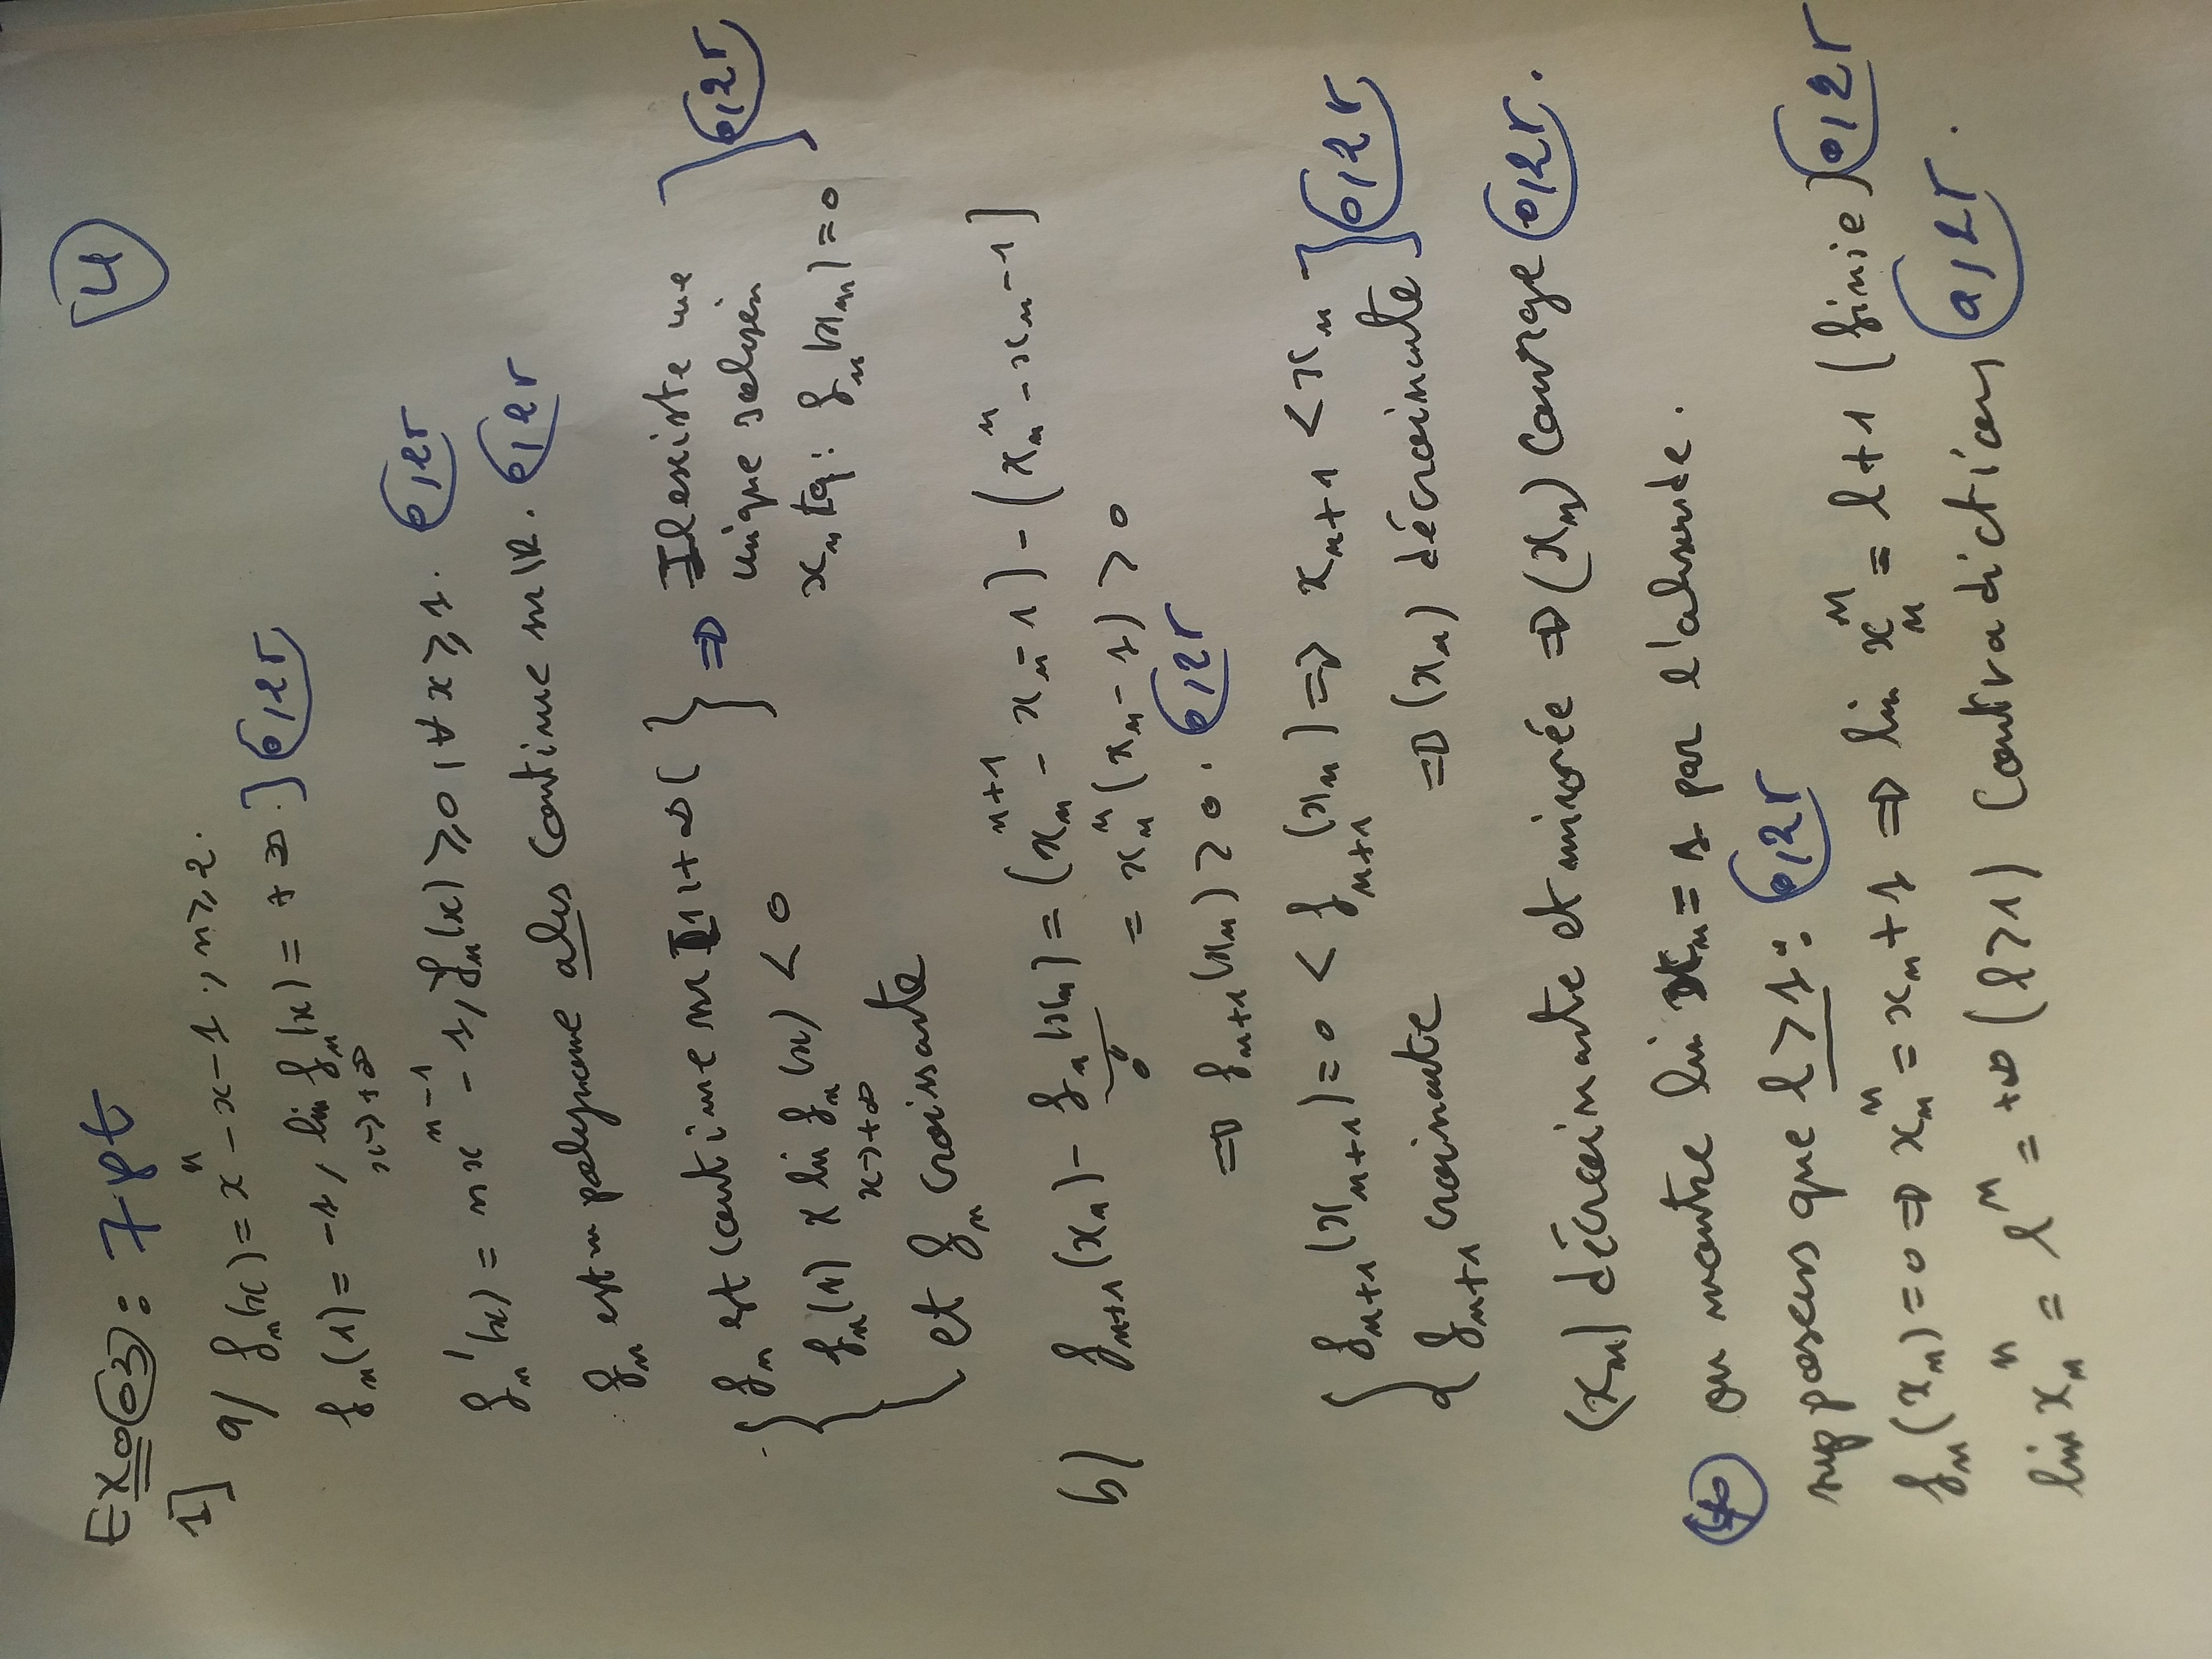 4
Exo 03 : 7 pt
1] a/ fₙ(x) = xⁿ - x - 1 ; n ≥ 2.
fₙ(1) = -1, lim_{x→+∞} fₙ(x) = +∞.] 0,25
fₙ'(x) = n xⁿ⁻¹ - 1, fₙ'(x) ≥ 0, ∀ x ≥ 1. 0,25
fₙ est un polynome alos continue sur ℝ. 0,25
{ fₙ est continue sur [1,+∞( } ⇒ Il existe une ] 0,25
{ fₙ(1) × lim_{x→+∞} fₙ(x) < 0 unique solution
{ et fₙ croissante xₙ tq: fₙ(xₙ) = 0
b) fₙ₊₁(xₙ) - fₙ(xₙ) = (xₙⁿ⁺¹ - xₙ - 1) - (xₙⁿ - xₙ - 1)
0 = xₙⁿ(xₙ - 1) > 0
⇒ fₙ₊₁(xₙ) > 0. 0,25
{ fₙ₊₁(xₙ₊₁) = 0 < fₙ₊₁(xₙ) ⇒ xₙ₊₁ < xₙ ] 0,25
{ fₙ₊₁ croissante ⇒ (xₙ) décroissante
(xₙ) décroissante et minorée ⇒ (xₙ) converge 0,25.
on montre lim xₙ = 1 par l'absurde.
supposons que l > 1 : 0,25
fₙ(xₙ) = 0 ⇒ xₙⁿ = xₙ + 1 ⇒ lim xₙⁿ = l + 1 (finie) 0,25
lim xₙⁿ = lⁿ = +∞ (l > 1) Contradiction 0,25.